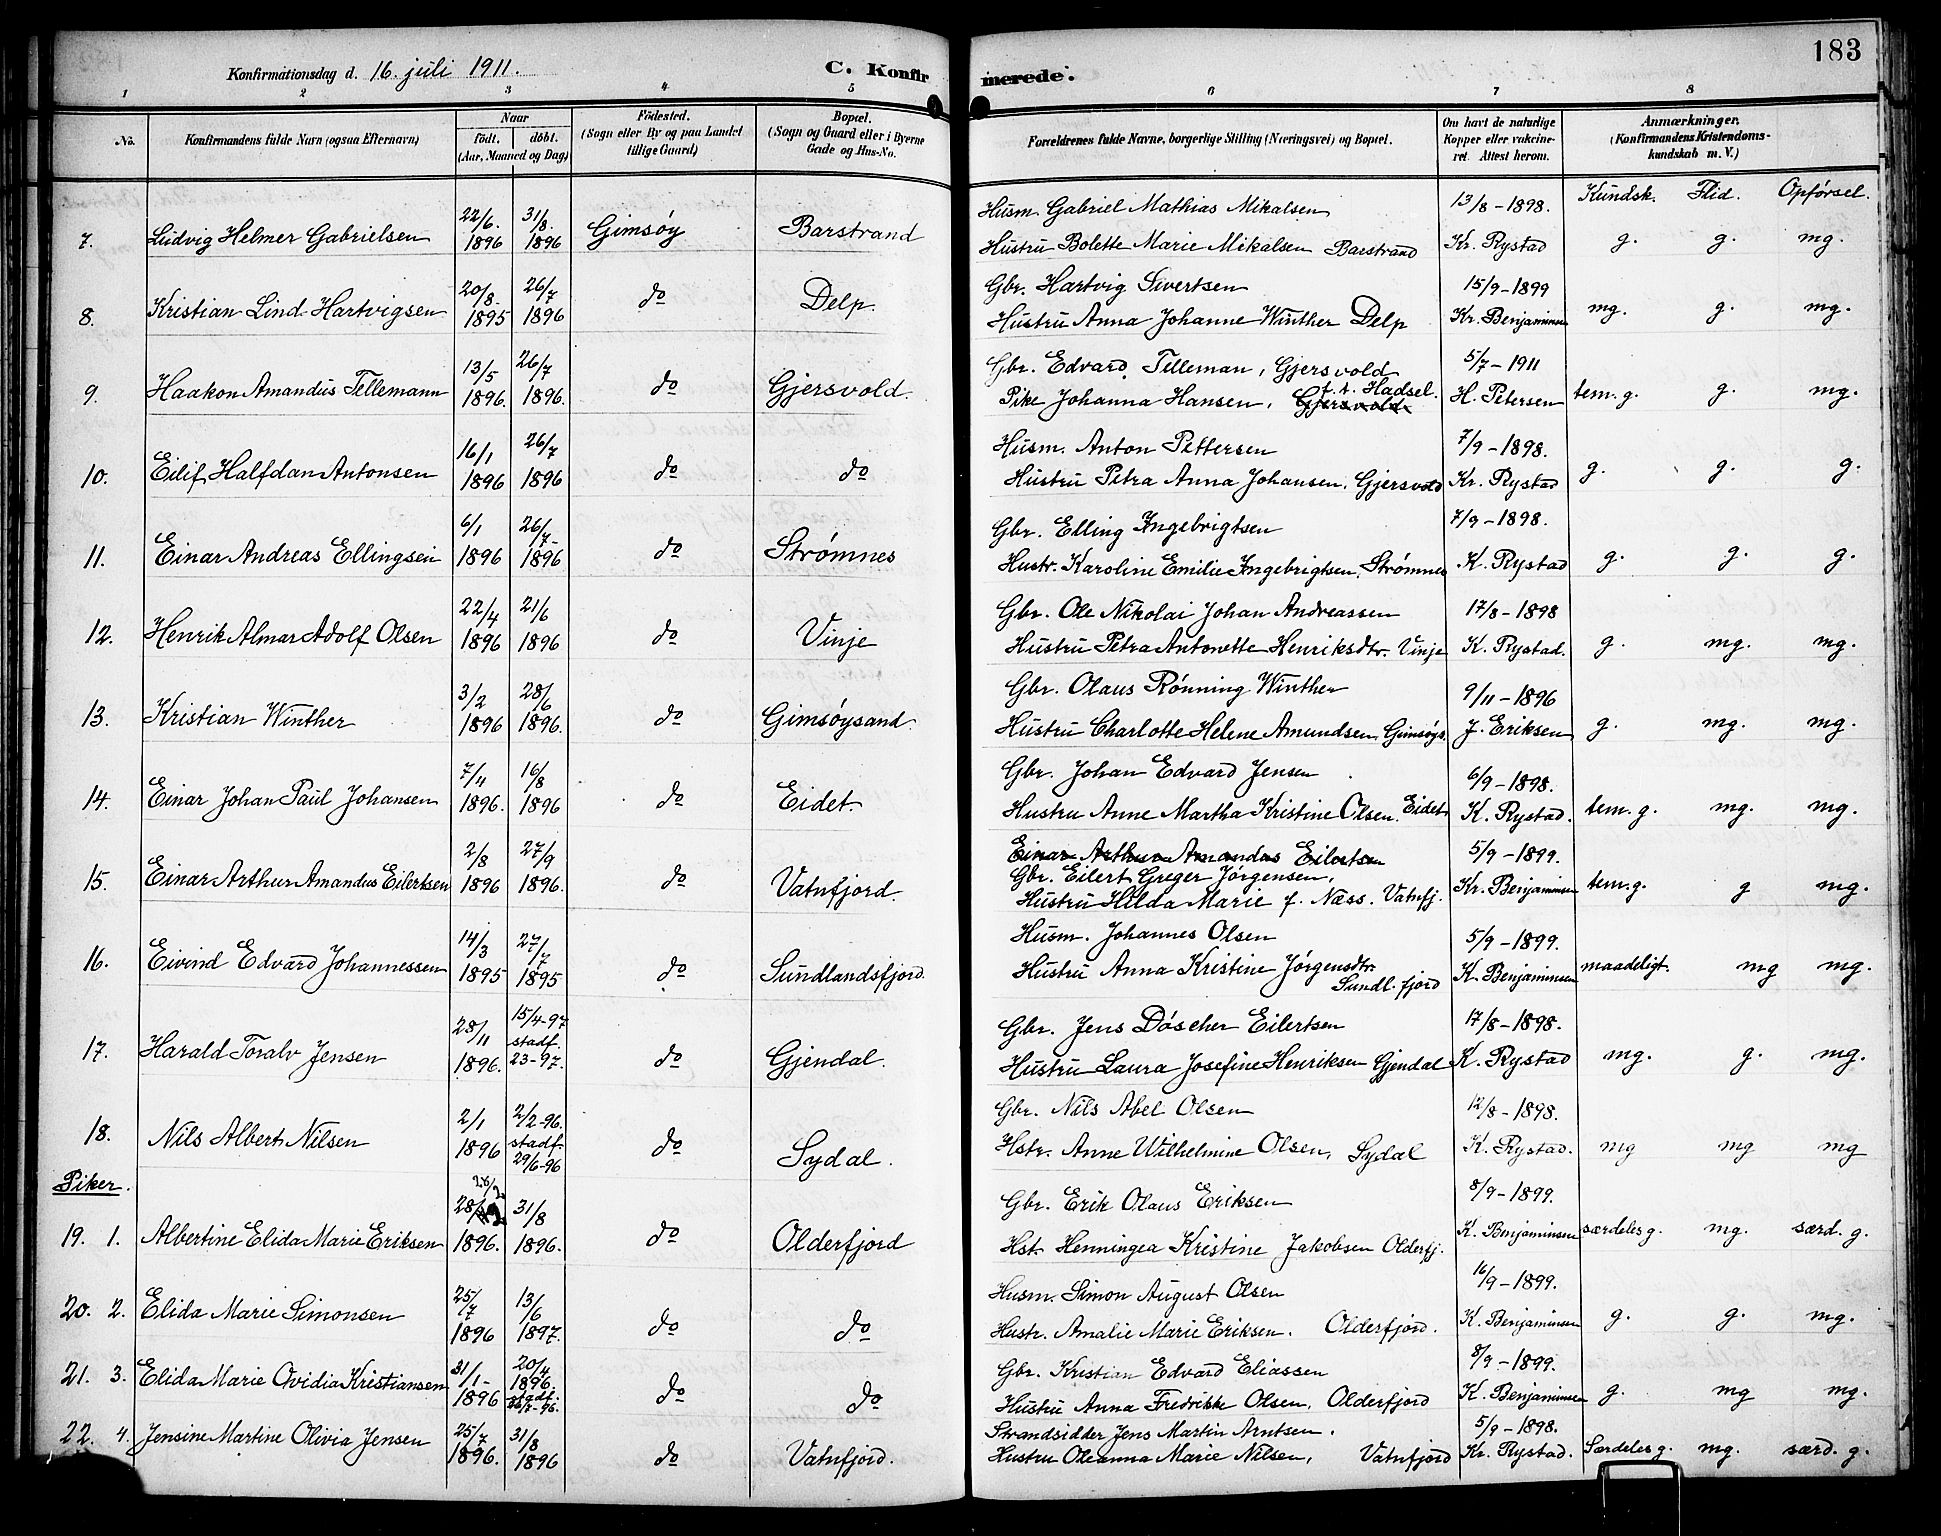 183
Konfirmationsdag d. 16. juli 1911. C. Konfir merede.
1 2 3 4 5 6 7 8
No. Konfirmandens fulde Navn (ogsaa Efternavn) Naar født. døbt. (Aar, Maaned og Dag) Födested. (Sogn eller By og paa Landet tillige Gaard) Bopæl. (Sogn og Gaard eller i Byerne Gade og Hus-No. Forældrenes fulde Navne, borgerlige Stilling (Næringsvei) og Bopæl. Om havt de naturlige Kopper eller vakcineret. Attest herom. Anmærkninger. (Konfirmandens Kristendomskundskab m. V.)
Kundsk. Flid. Opførsel.
7. Ludvig Helmer Gabrielsen 22/6. 1896 31/8. 1896 Gimsöy Barstrand Husm. Gabriel Mathias Mikalsen 13/8 - 1898.
Hustru Bolette Marie Mikalsen Barstrand Kr. Rystad g. g. mg.
8. Kristian Lind Hartvigsen 20/8. 1895 26/7 1896 do Delp. Gbr. Hartvig Sivertsen 15/9 - 1899
Hustru Anna Johanne Winther Delp Kr. Benjaminsen mg. g. mg.
9. Haakon Amandus Tellemann 13/5 1896. 26/7 1896. do Gjersvold. Gbr. Edvard Telleman, Gjersvold 5/7 - 1911
Pike Johanna Hansen, Gjersvold. f. t. Hadsel. H. Petersen tem. g. g. mg.
10. Eilif Halfdan Antonsen 16/1 1896 26/7 1896 do do Husm. Anton Pettersen 7/9 - 1898.
Hustru Petra Anna Johansen, Gjersvold Kr. Rystad g. g. g.
11. Einar Andreas Ellingsen 6/1 1896 26/7 1896 do Strømnes Gbr. Elling Ingebrigtsen 7/9 - 1898.
Hustr. Karoline Emilie Ingebrigtsen, Strømnes K. Rystad g. g. g.
12. Henrik Almar Adolf Olsen 22/4 1896 21/6 1896 do Vinje Gbr. Ole Nikolai Johan Andreassen 17/8 - 1898
Hustru Petra Antonette Henriksdtr. Vinje K. Rystad. g. mg. mg.
13. Kristian Winther 3/2 1896 28/6 1896. do Gimsöysand. Gbr. Olaus Rönning Winther 9/11 - 1896
Hustru Charlotte Helene Amundsen, Gimsöys. J. Eriksen g. mg. mg.
14. Einar Johan Paul Johansen 7/4 1896. 16/8 1896 do Eidet. Gbr. Johan Edvard Jensen 6/9 - 1898.
Hustru Anne Martha Kristine Olsen. Eidet K. Rystad. tem. g. mg. mg.
15. Einar Arthur Amandus Eilertsen 2/8 1896 27/9 1896. do Vatnfjord. Einar Arthur Amandus Eilertsen 5/9 - 1899.
Gbr. Eilert Greger Jörgensen,
Hustru Hilda Marie f. Næss. Vatnfj. Kr. Benjaminsen tem. g. g mg.
16. Eivind Edvard Johannessen 14/3 1895 27/7 1895 do Sundlandsfjord. Husm. Johannes Olsen 5/9 - 1899.
Hustru Anna Kristine Jörgensdtr. Sundl. fjord K. Benjaminsen maadeligt. mg mg.
17. Harald Toralv Jensen 28/11 1896. 15/4-97 stadf. 23-97. do Gjendal. Gbr. Jens Döscher Eilertsen 17/8 - 1898.
Hustru Laura Josefine Henriksen Gjendal K. Rystad mg. g. mg.
18. Nils Albert Nilsen 2/1 1896 2/2-96. stadf. 29/6-96 do Sydal. Gbr. Nils Abel Olsen 12/8 - 1898.
Hstr. Anne Wilhelmine Olsen, Sydal K. Rystad. mg mg mg
Piker.
19. 1. Albertine Elida Marie Eriksen 28/2 1896. 31/8 1896. do Olderfjord Gbr. Erik Olaus Eriksen 8/9 - 1899.
Hst. Henningea Kristine Jakobsen Olderfj. K. Benjaminsen særdeles g. mg. særd. g.
20. 2. Elida Marie Simonsen 25/7 1896 13/6 1897. do do Husm. Simon August Olsen 16/9 - 1899.
Hustr. Amalie Marie Eriksen. Olderfjord. K. Benjaminsen g. g. mg.
21. 3. Elida Marie Ovidia Kristiansen 31/1 - 1896 20/4 1896 stadf. do do Gbr. Kristian Edvard Eliassen 8/9 - 1899.
Hustru Anna Fredrikke Olsen, Olderfjord K. Benjaminsen g. mg mg.
22. 4. Jensine Martine Olivia Jensen 25/7 1896. 31/8 1896 do Vatnfjord. Strandsidder Jens Martin Arntsen. 5/9 - 1898.
Hustru Oleanna Marie Nilsen, Vatnfjord Kr. Rystad. Særdeles g. mg. særd. g.